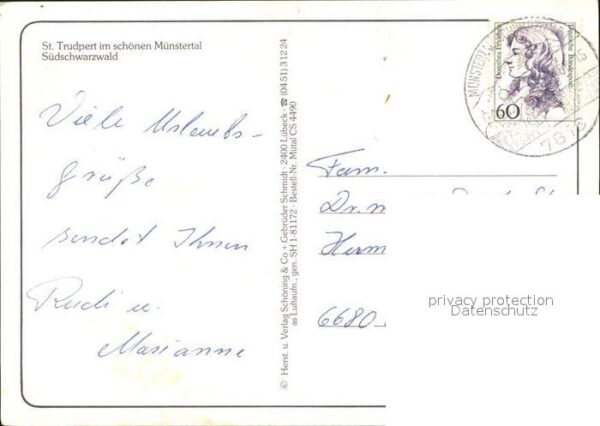 St. Trudpert im schönen Münstertal
Südschwarzwald
Viele Urlaubs-
grüße
sendet Ihnen
Rudi u.
Marianne
© Herst. u. Verlag Schöning & Co + Gebrüder Schmidt · 2400 Lübeck · ☎ (0451) 31224
as Luftaufn., gen. SH 1-81172 · Bestell-Nr. Mütal CS 4490
Dorothea Erxleben
Deutsche Bundespost
60
7816
Fam.
Dr.
Herm
6680
privacy protection
Datenschutz